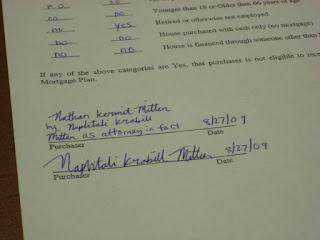 no no
no no Younger than 18 or Older than 66 years of age
no yes Retired or otherwise not employed
no no House purchased with cash only (no mortgage)
no no House is financed through someone other than
If any of the above categories are Yes, that purchaser is not eligible to
Mortgage Plan.
Nathan Kermit Mitten
by Naphtali Krabill
Mitten as attorney in fact 8/27/09
Purchaser Date
Naphtali Krabill Mitten 8/27/09
Purchaser Date